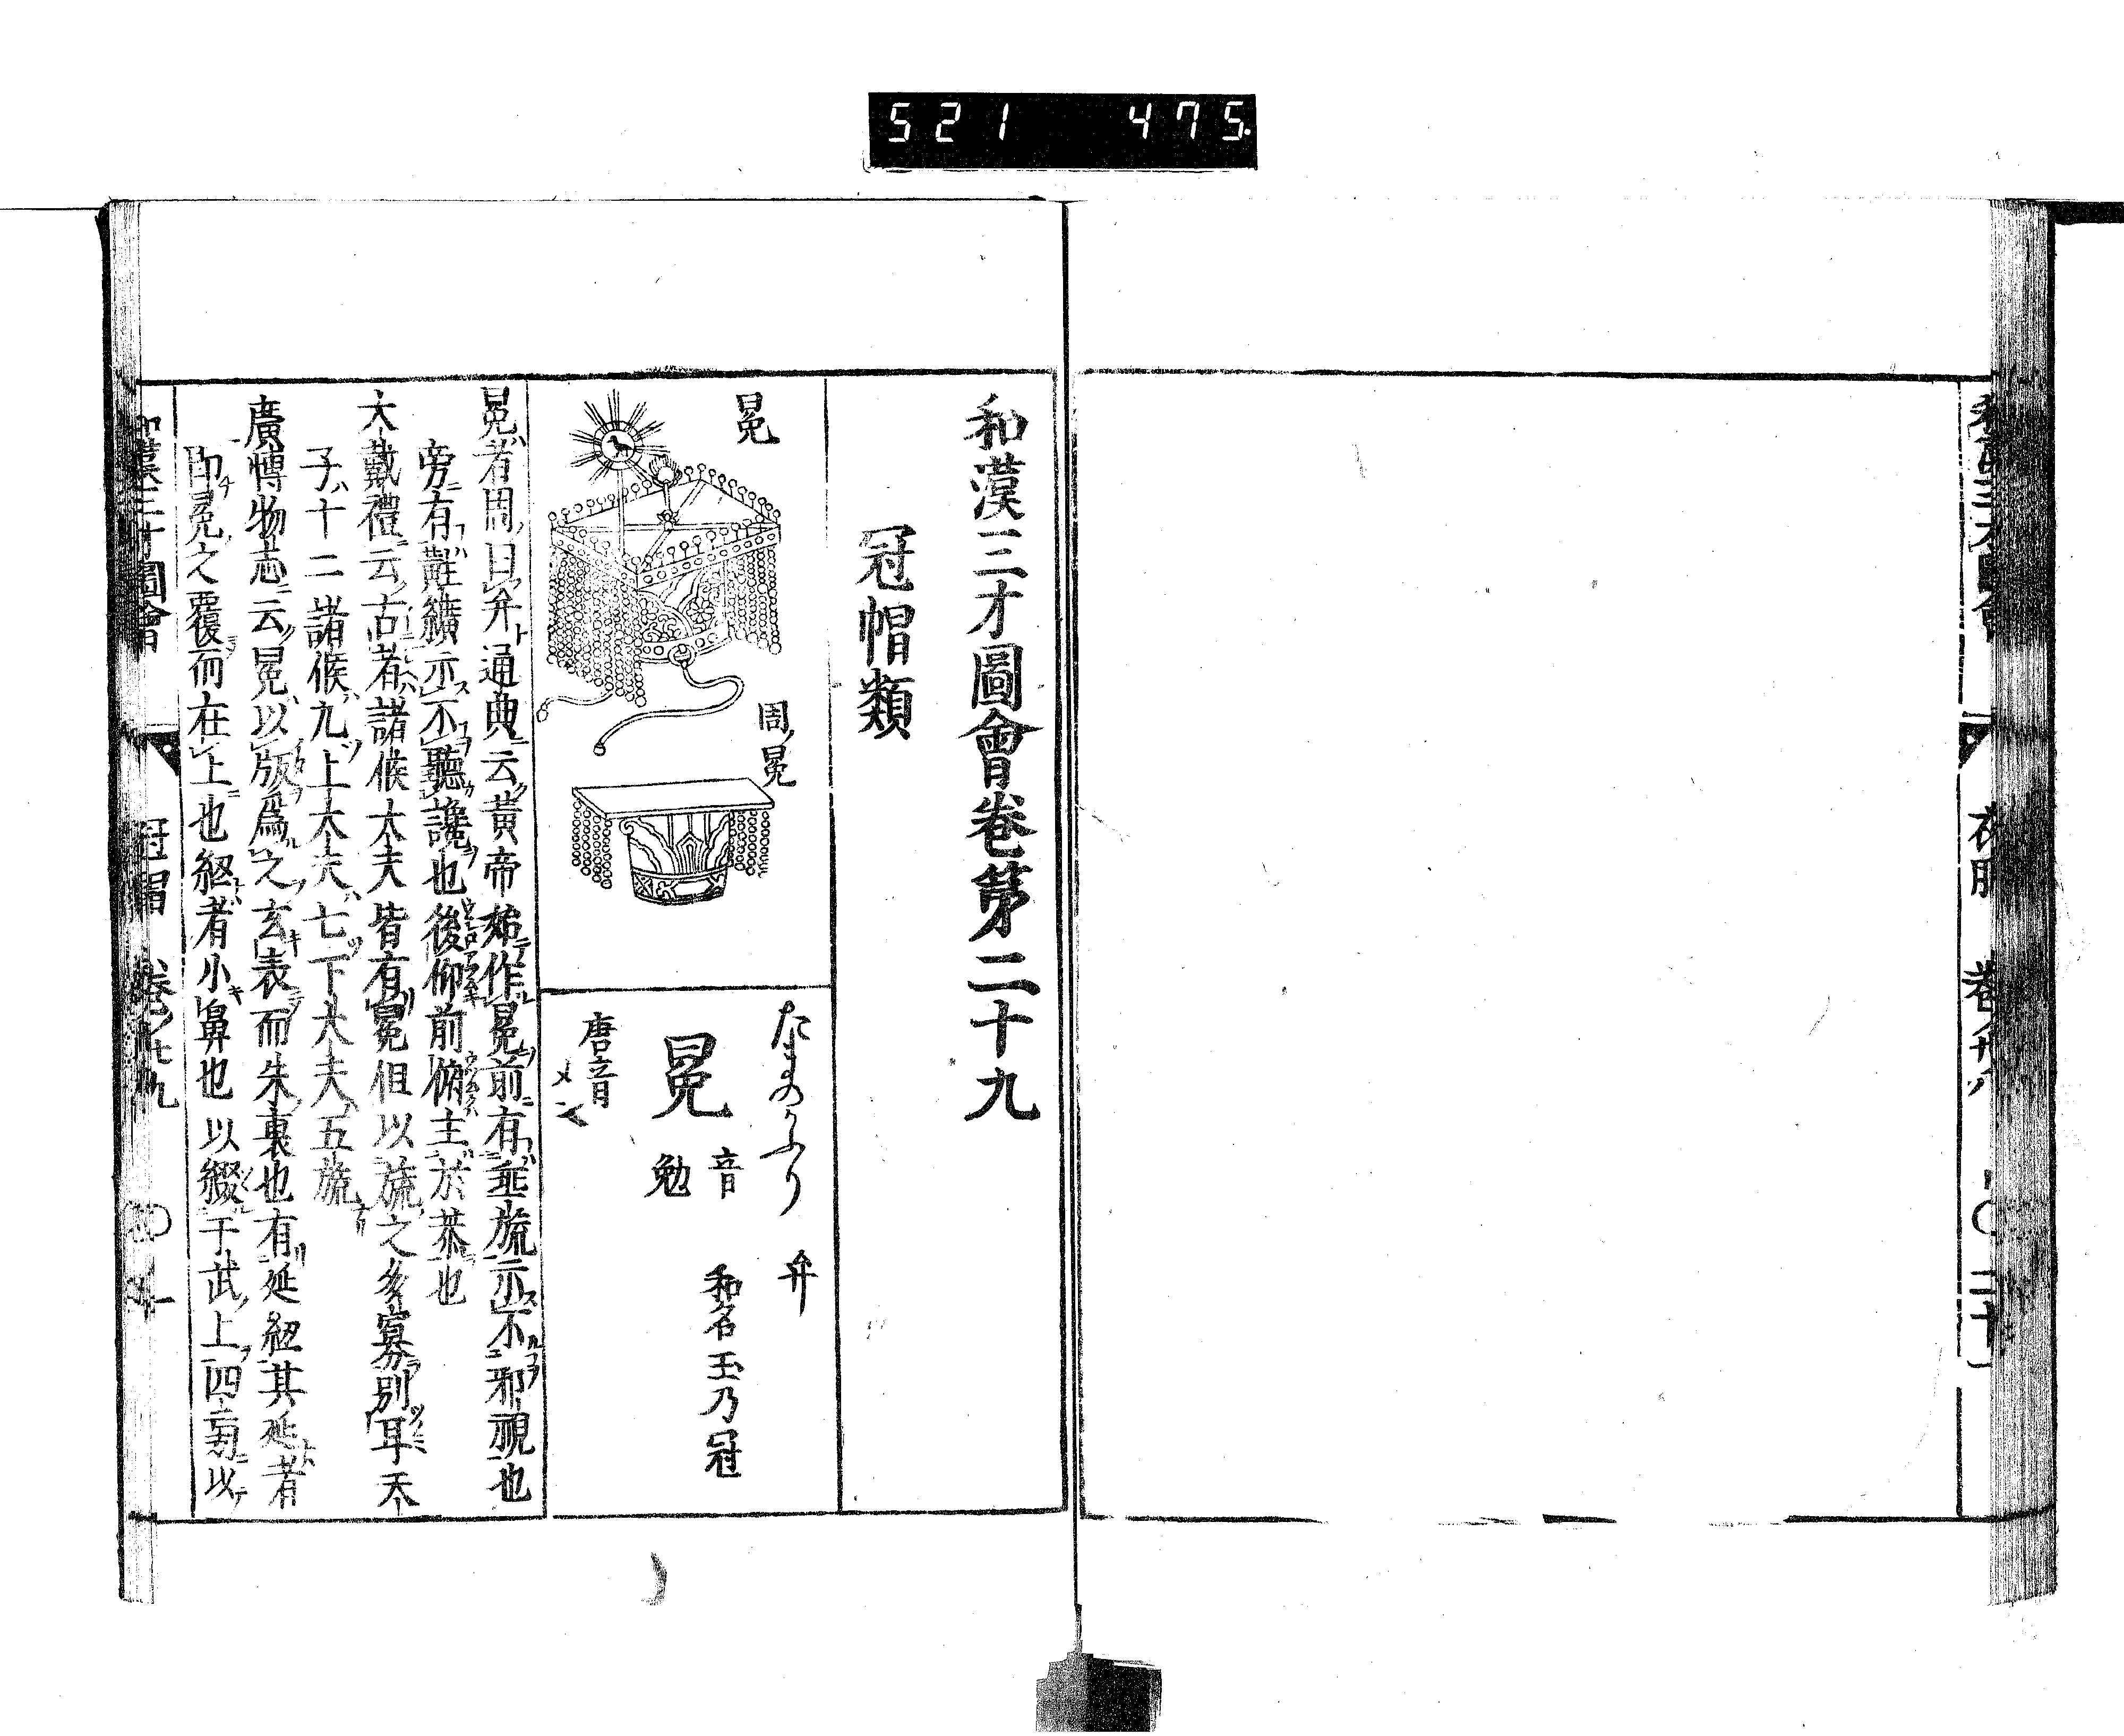 521 475.
和漢三才圖會卷第二十九
冠帽類
冕
周ノ冕
たまのかふり 弁
冕 音勉
和名玉乃冠
唐音 メン
冕者周曰弁通典云黃帝始作冕前有垂旒示不邪視也
旁有黈纊示不聽讒也後仰前俯主於恭也
大戴禮云古者諸侯大夫皆有冕但以旒之多寡別耳天
子十二諸侯九上大夫七下大夫五旒
廣博物志云冕以版爲之玄表而朱裏也有延紐其延者
即冕之覆而在上也紐者小鼻也以綴于武上四旁以
和漢三才圖會 冠帽 卷ノ廿九 〇一